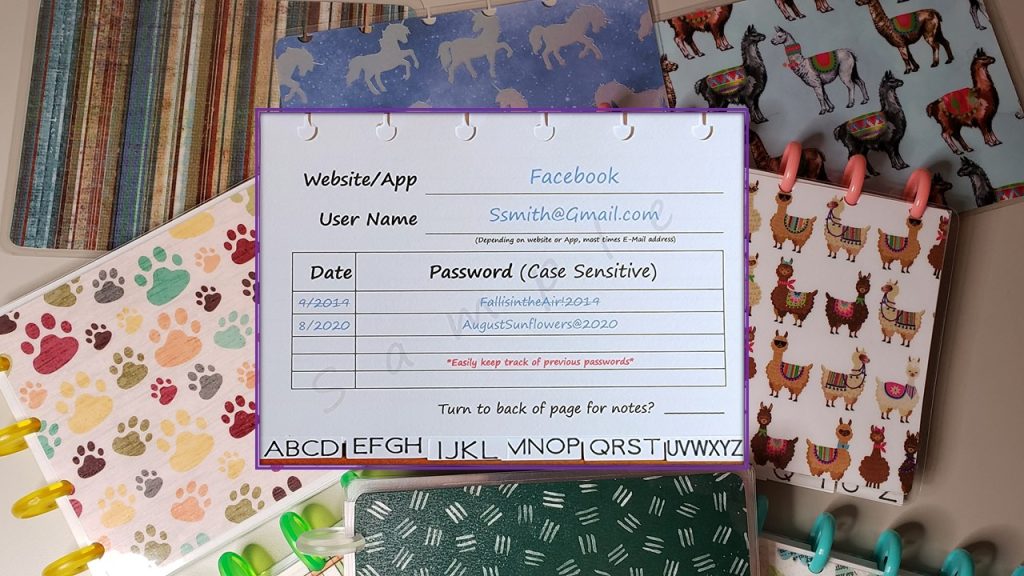 Website/App Facebook
User Name Ssmith@Gmail.com
(Depending on website or App, most times E-Mail address)
Date Password (Case Sensitive)
4/2014 FallisintheAir!2014
8/2020 AugustSunflowers@2020
*Easily keep track of previous passwords*
Sample
Turn to back of page for notes?
ABCD EFGH IJKL MNOP QRST UVWXYZ